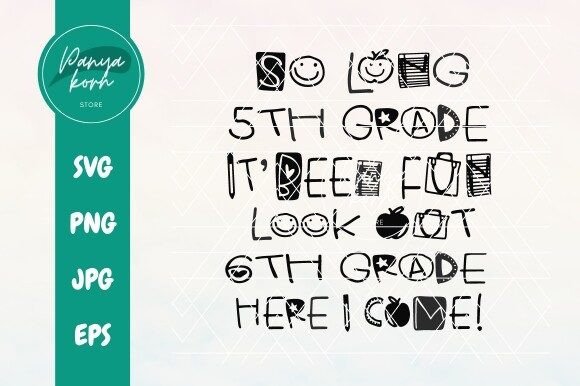 Panya
korn
STORE
SVG
PNG
JPG
EPS
SO LONG
5TH GRADE
IT'BEEN FUN
LOOK OUT
6TH GRADE
HERE I COME!